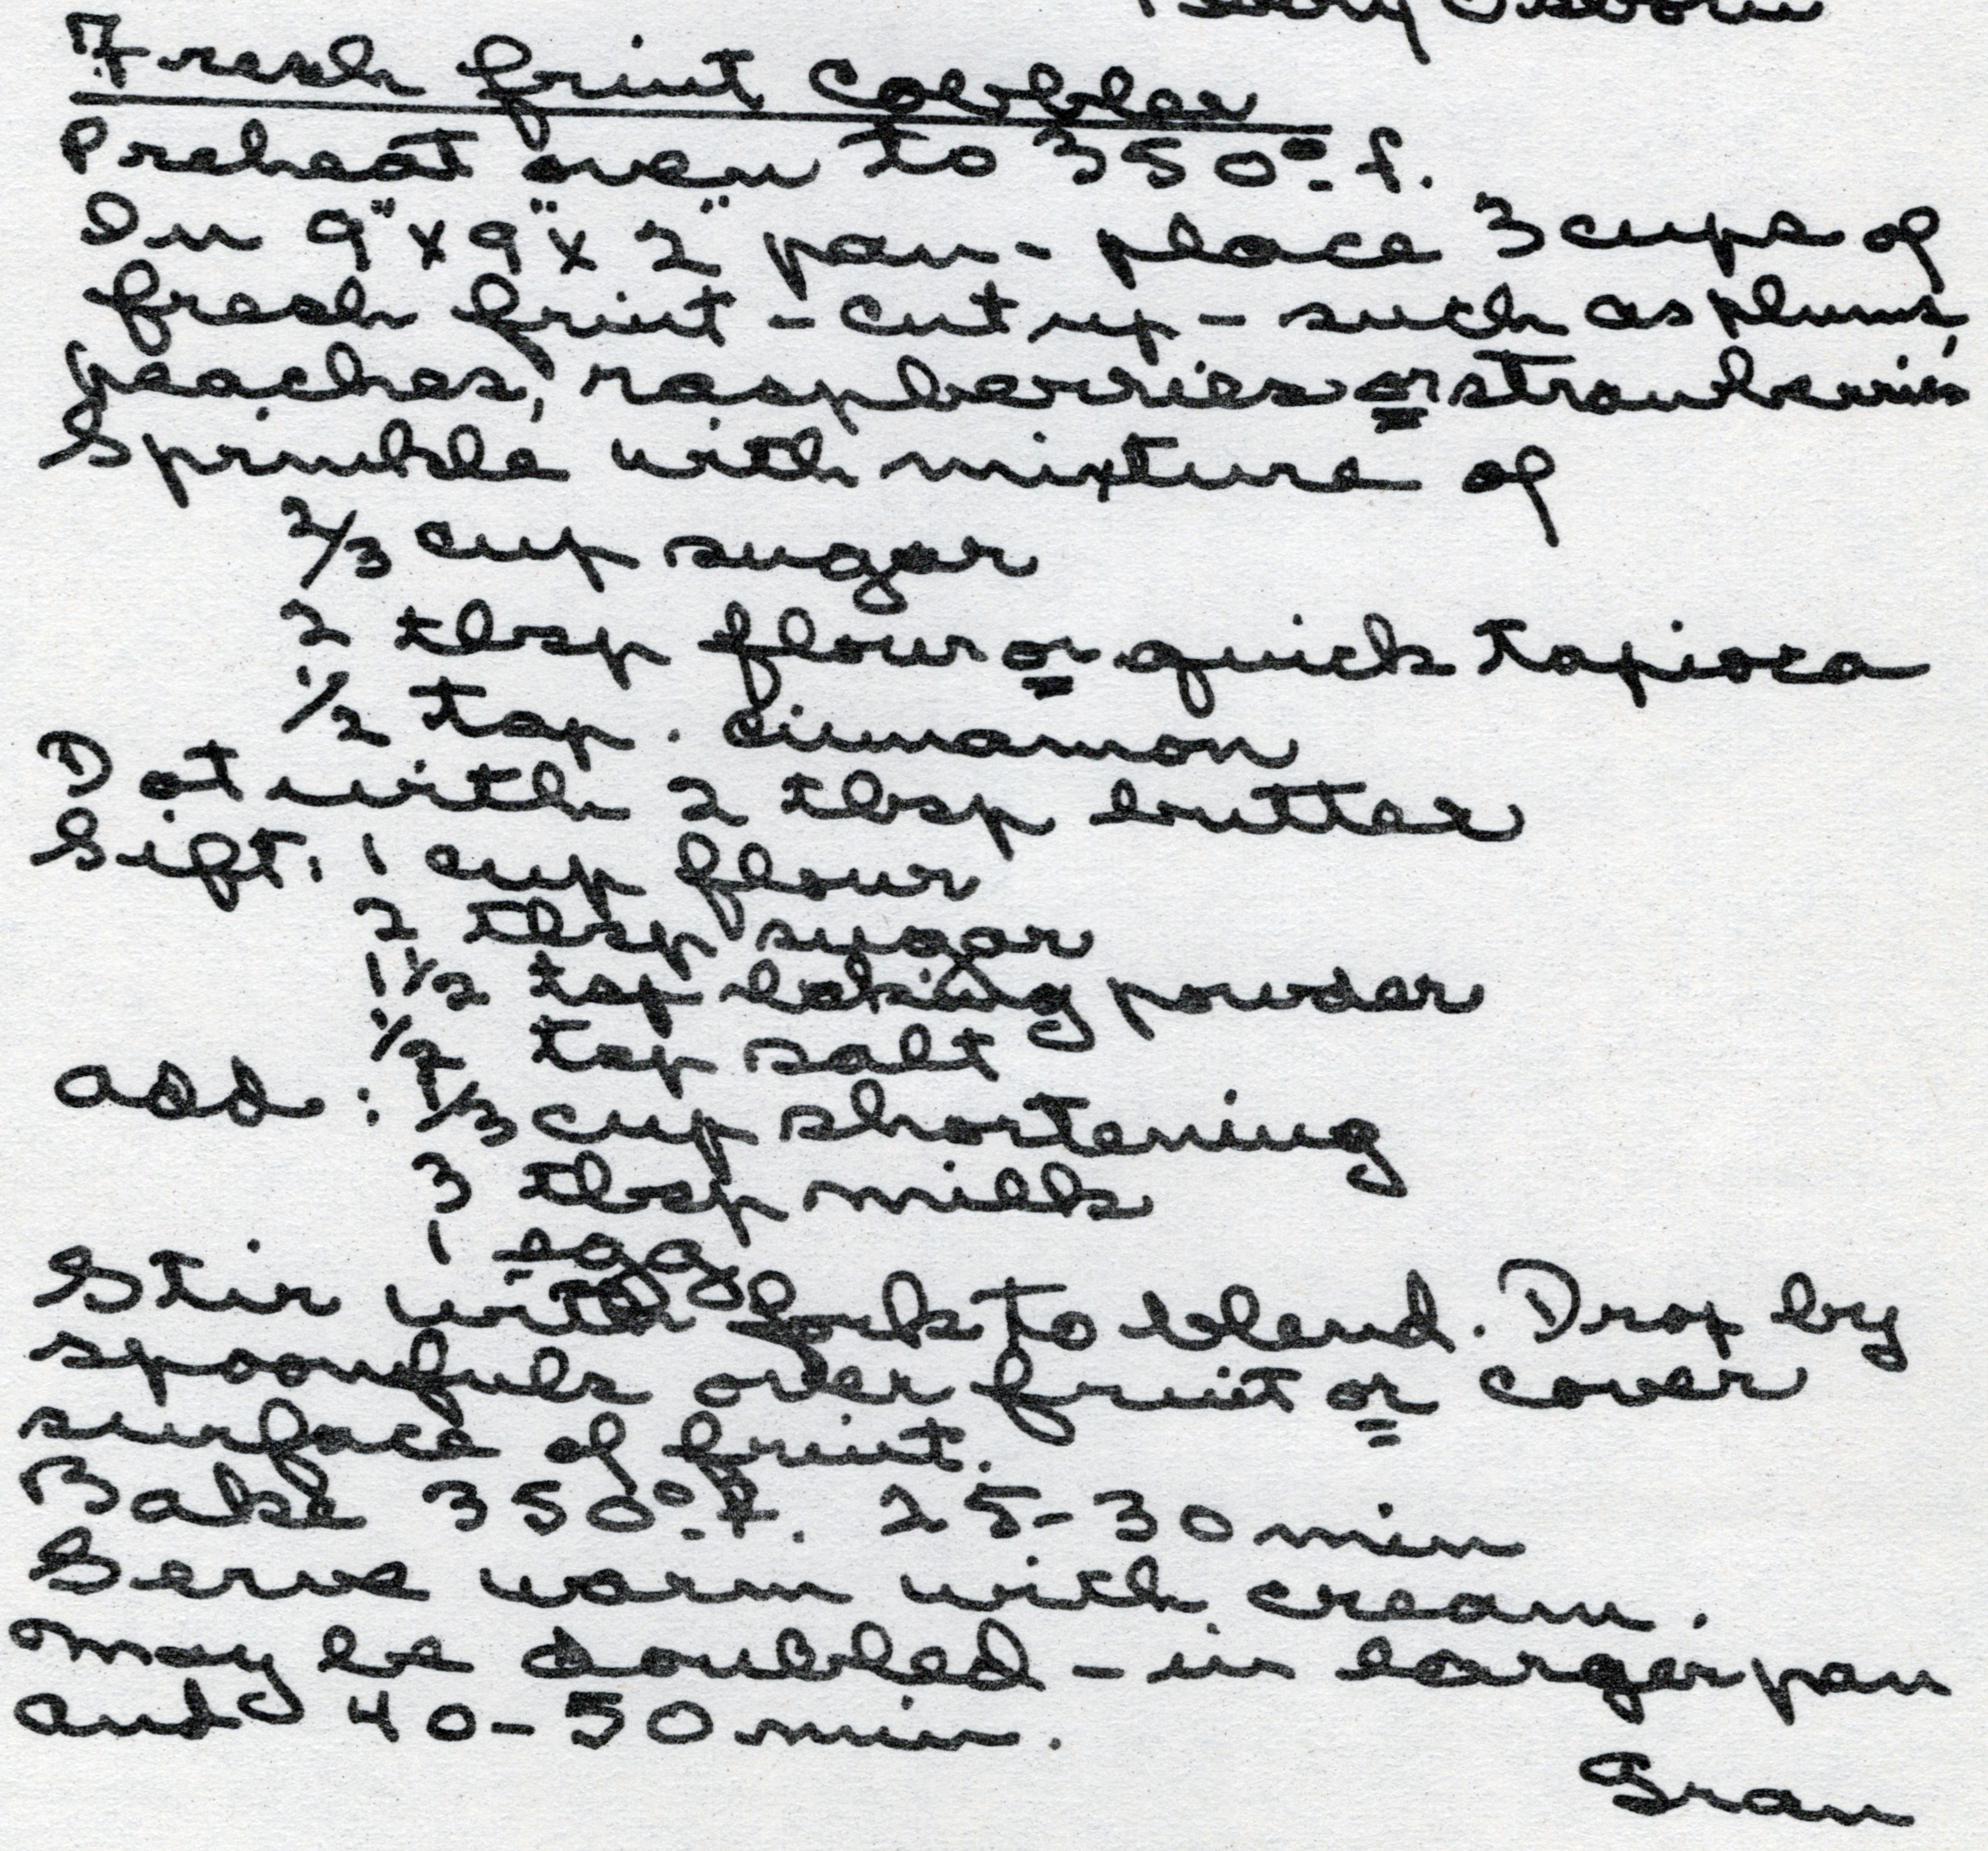 Fresh fruit Cobbler
Preheat oven to 350° f.
In 9"x9"x2" pan - place 3 cups of
fresh fruit - cut up - such as plums,
peaches, raspberries or strawberries
Sprinkle with mixture of
2/3 cup sugar
2 tbsp flour or quick tapioca
1/2 tsp. cinnamon
Dot with 2 tbsp butter
Sift: 1 cup flour
2 tbsp sugar
1 1/2 tsp baking powder
1/2 tsp salt
add: 1/3 cup shortening
3 tbsp milk
1 egg
Stir with fork to blend. Drop by
spoonfuls over fruit or cover
surface of fruit.
Bake 350° F. 25-30 min
Serve warm with cream.
May be doubled - in larger pan
and 40-50 min.
Gran